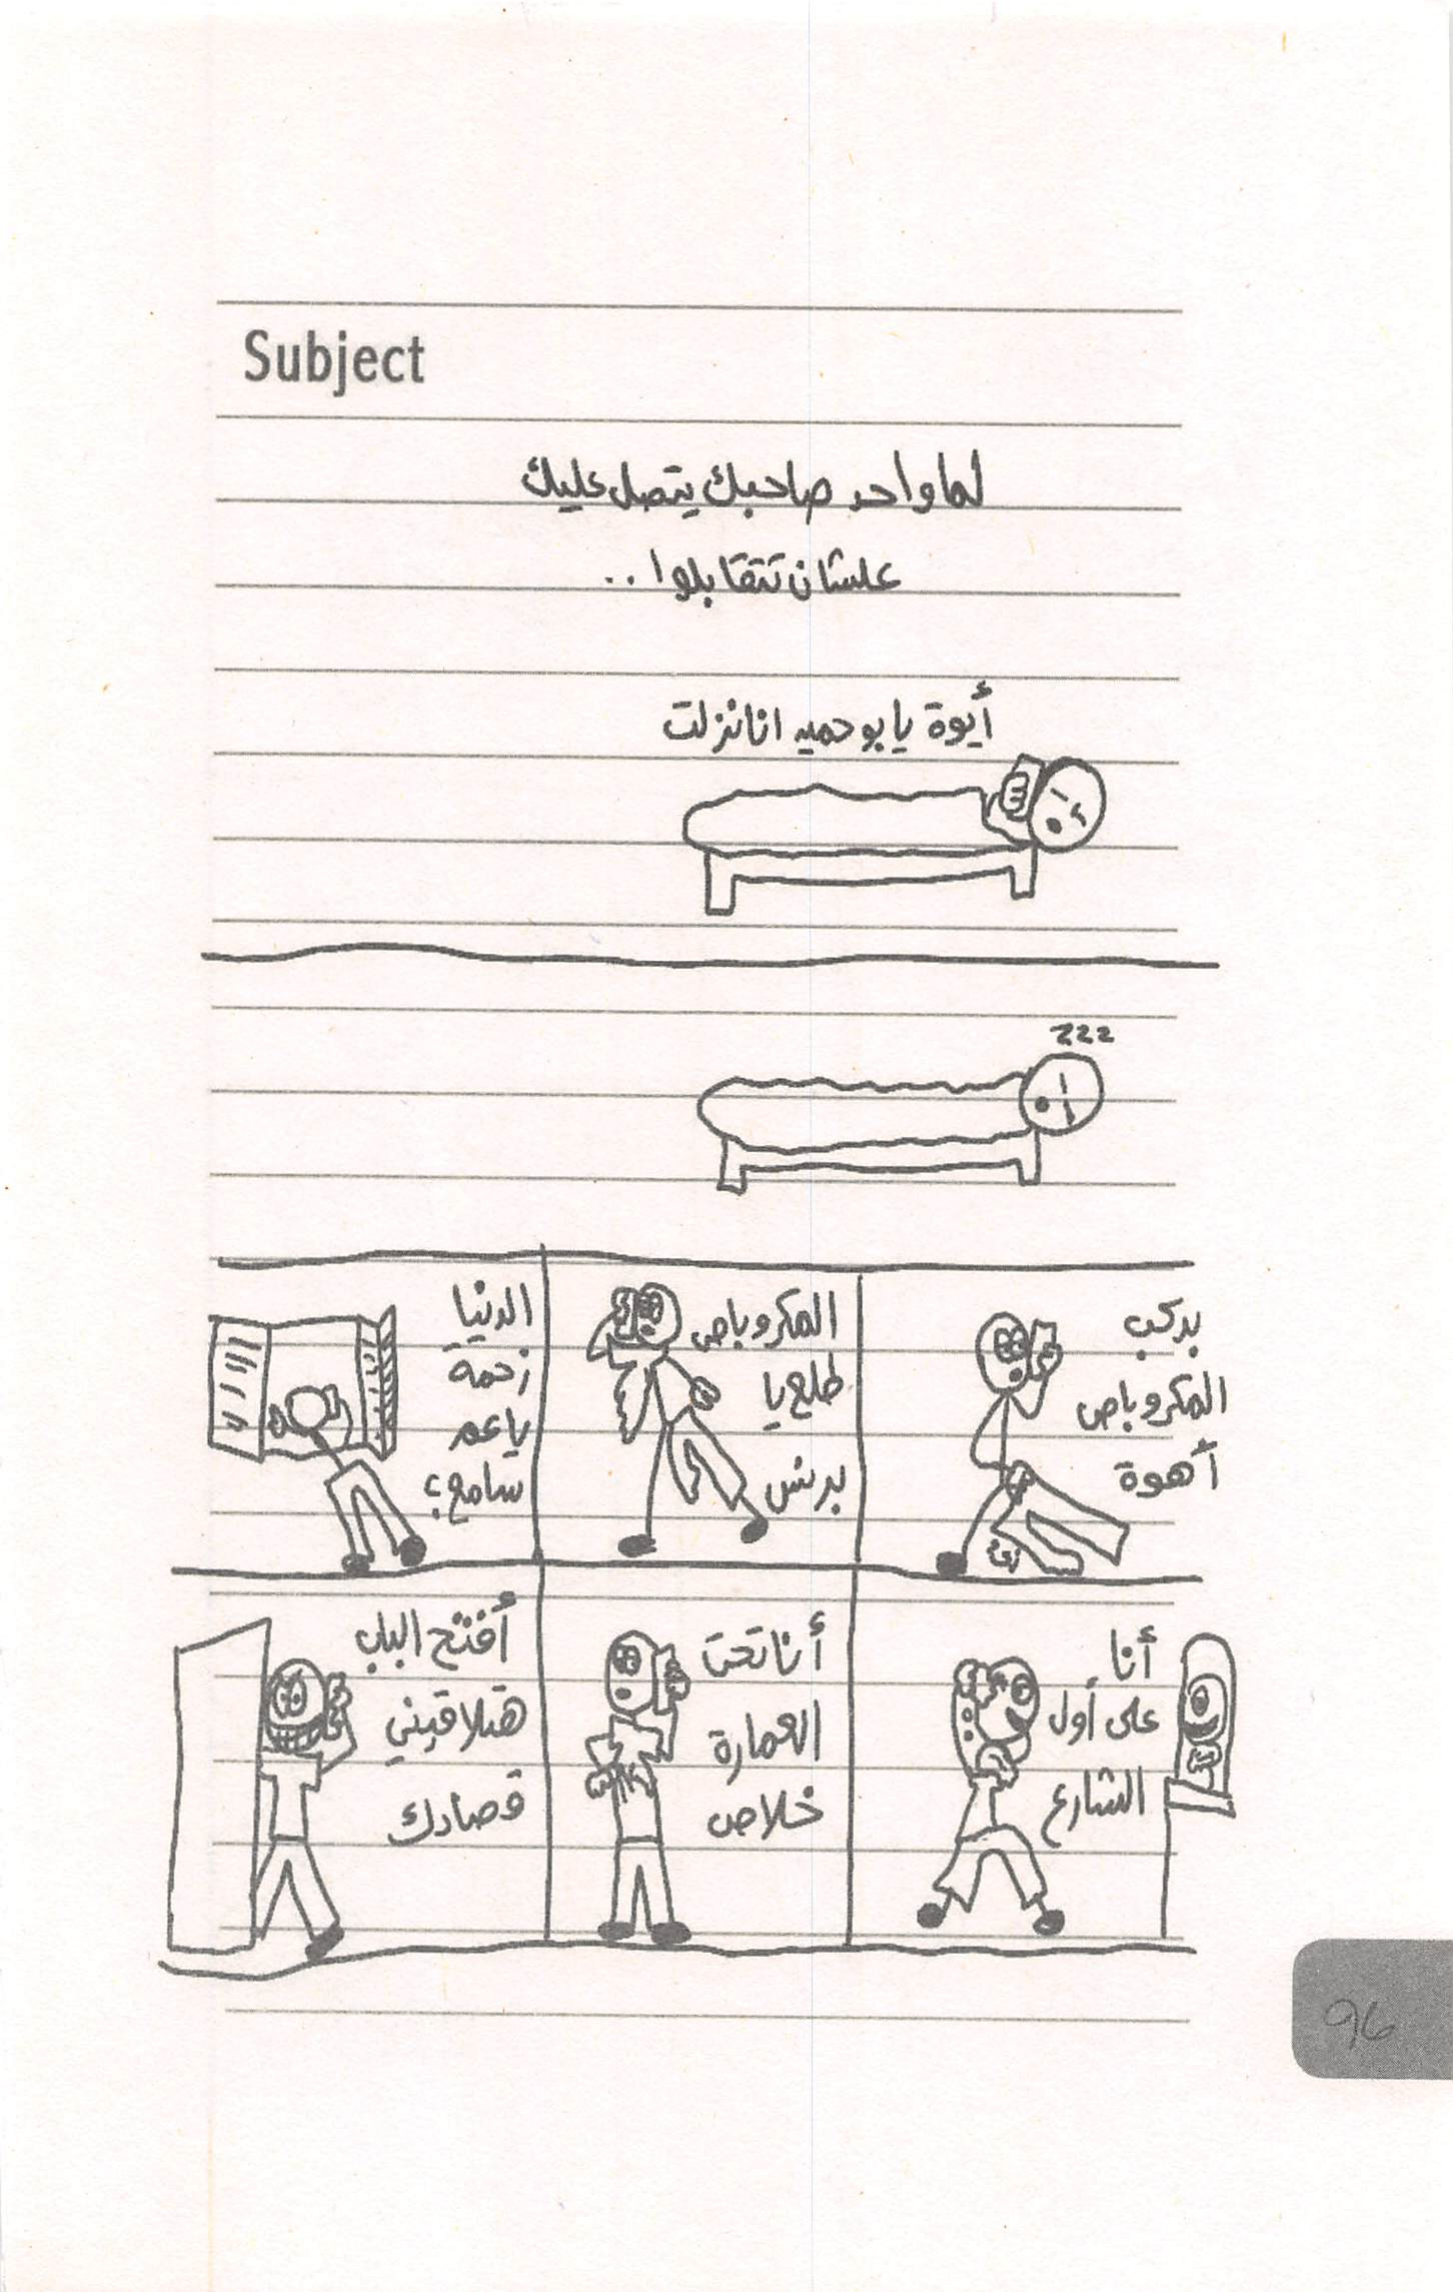 Subject
لما واحد صاحبك يتصل عليك
علشان تتقابلوا..
أيوة يا بو حميد انا نزلت
zzz
بركب
المكروباص
أهوة
المكروباص
طلع يا
برنس
الدنيا
زحمة
يا عم
سامع؟
أنا
على أول
الشارع
أنا تحت
العمارة
خلاص
أفتح الباب
هتلاقيني
قصادك
96